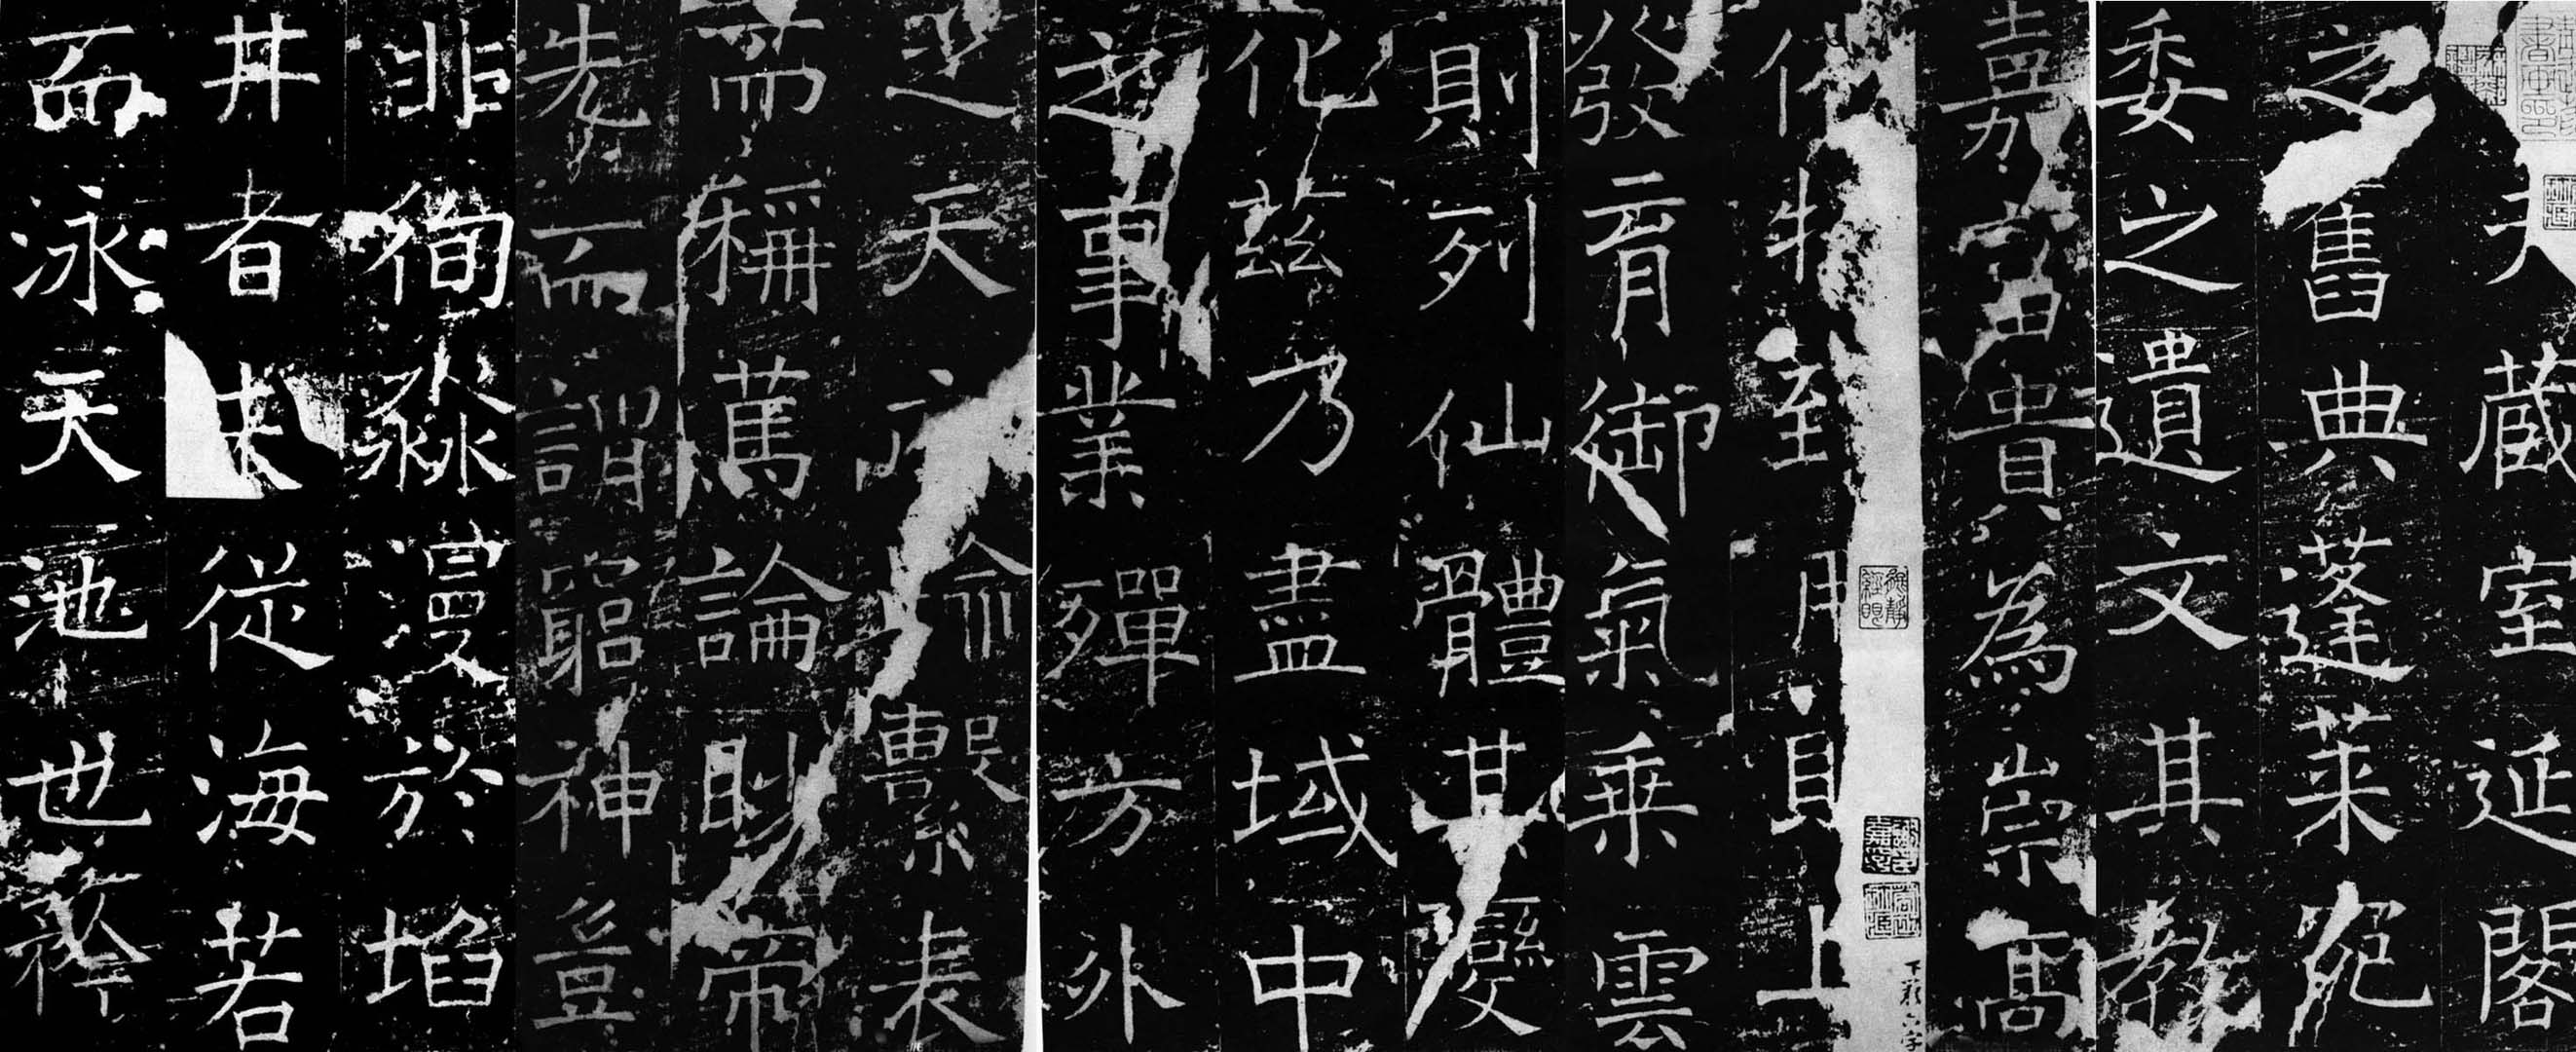 藏室延閣
之舊典蓬萊宛
委之遺文其教
富貴為崇高
至用上
發育御氣乘雲
則列仙體其變
化茲乃盡域中
之事業殫方外
之天繫表
而稱篤論眇帝
先而謂窮神豈
非徇淼漫於埳
井者未從海若
而泳天池也釋